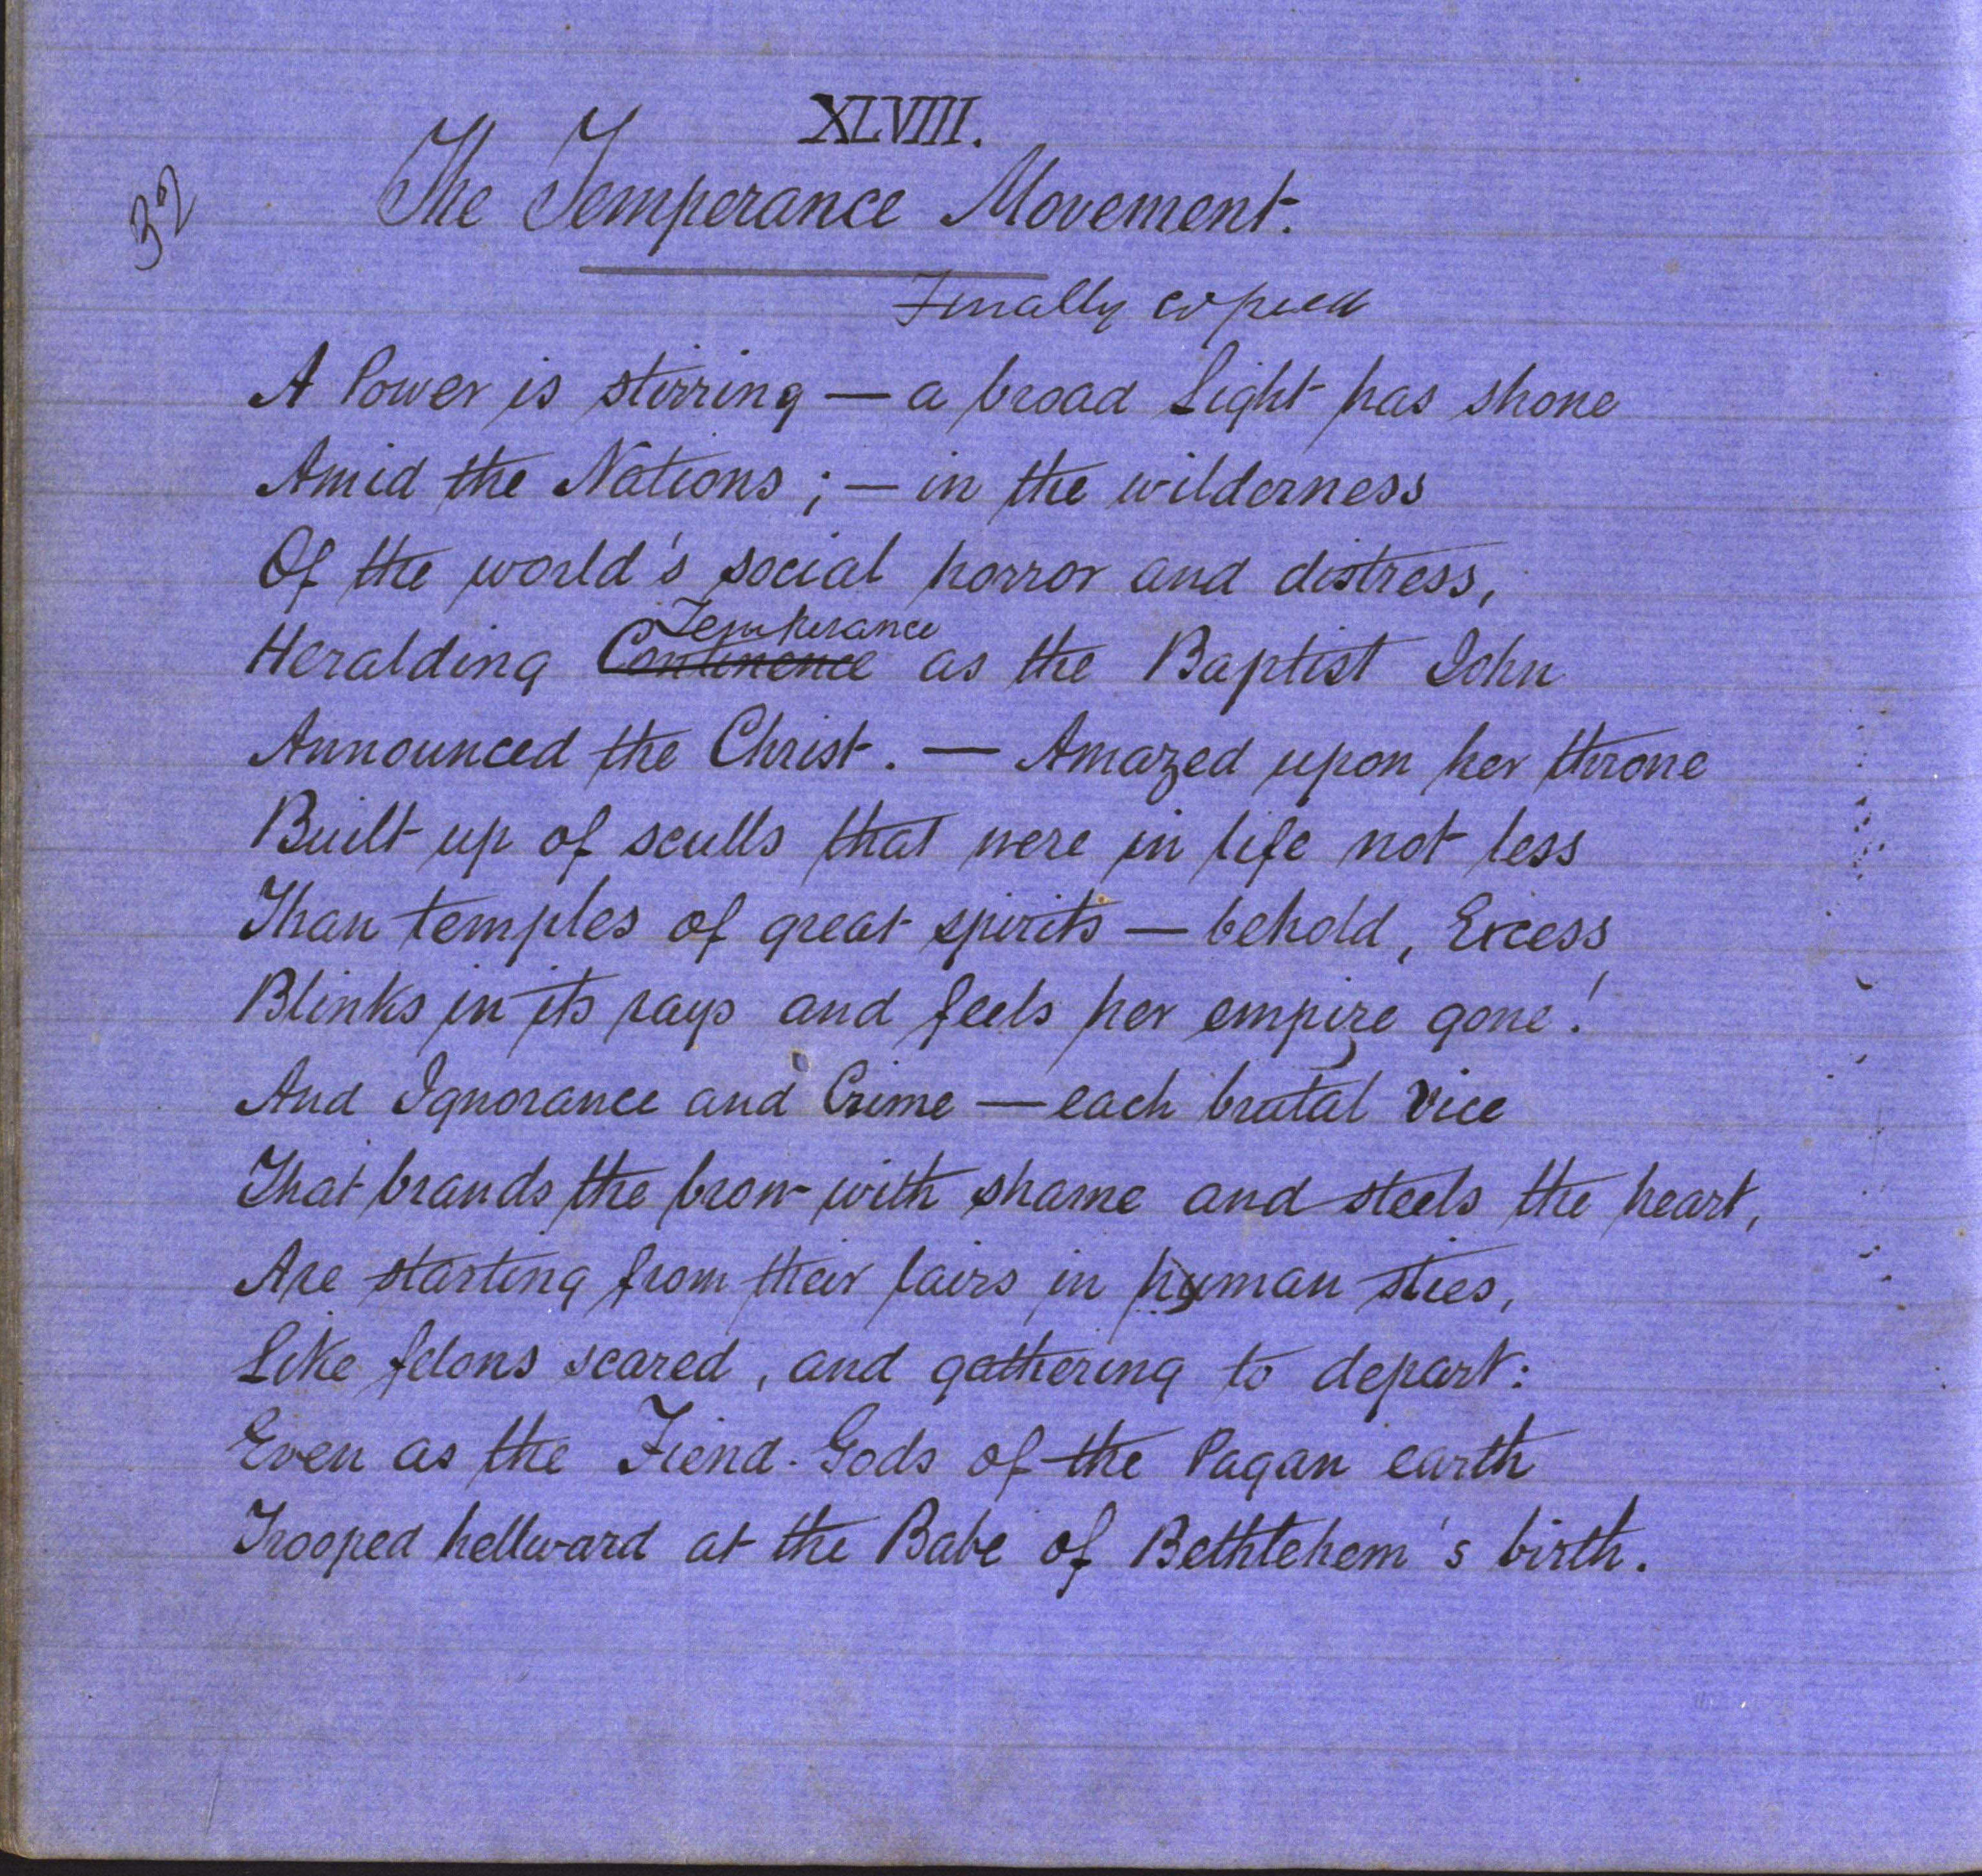 XLVIII.
32
The Temperance Movement.
Finally copied
A Power is stirring — a broad Light has shone
Amid the Nations ; — in the wilderness
Of the world's social horror and distress,
Temperance
Heralding Continence as the Baptist John
Announced the Christ. — Amazed upon her throne
Built up of sculls that were in life not less
Than temples of great spirits — behold, Excess
Blinks in its rays and feels her empire gone!
And Ignorance and Crime — each brutal Vice
That brands the brow with shame and steels the heart,
Are starting from their lairs in human sties,
Like felons scared, and gathering to depart:
Even as the Fiend-Gods of the Pagan earth
Trooped hellward at the Babe of Bethlehem's birth.